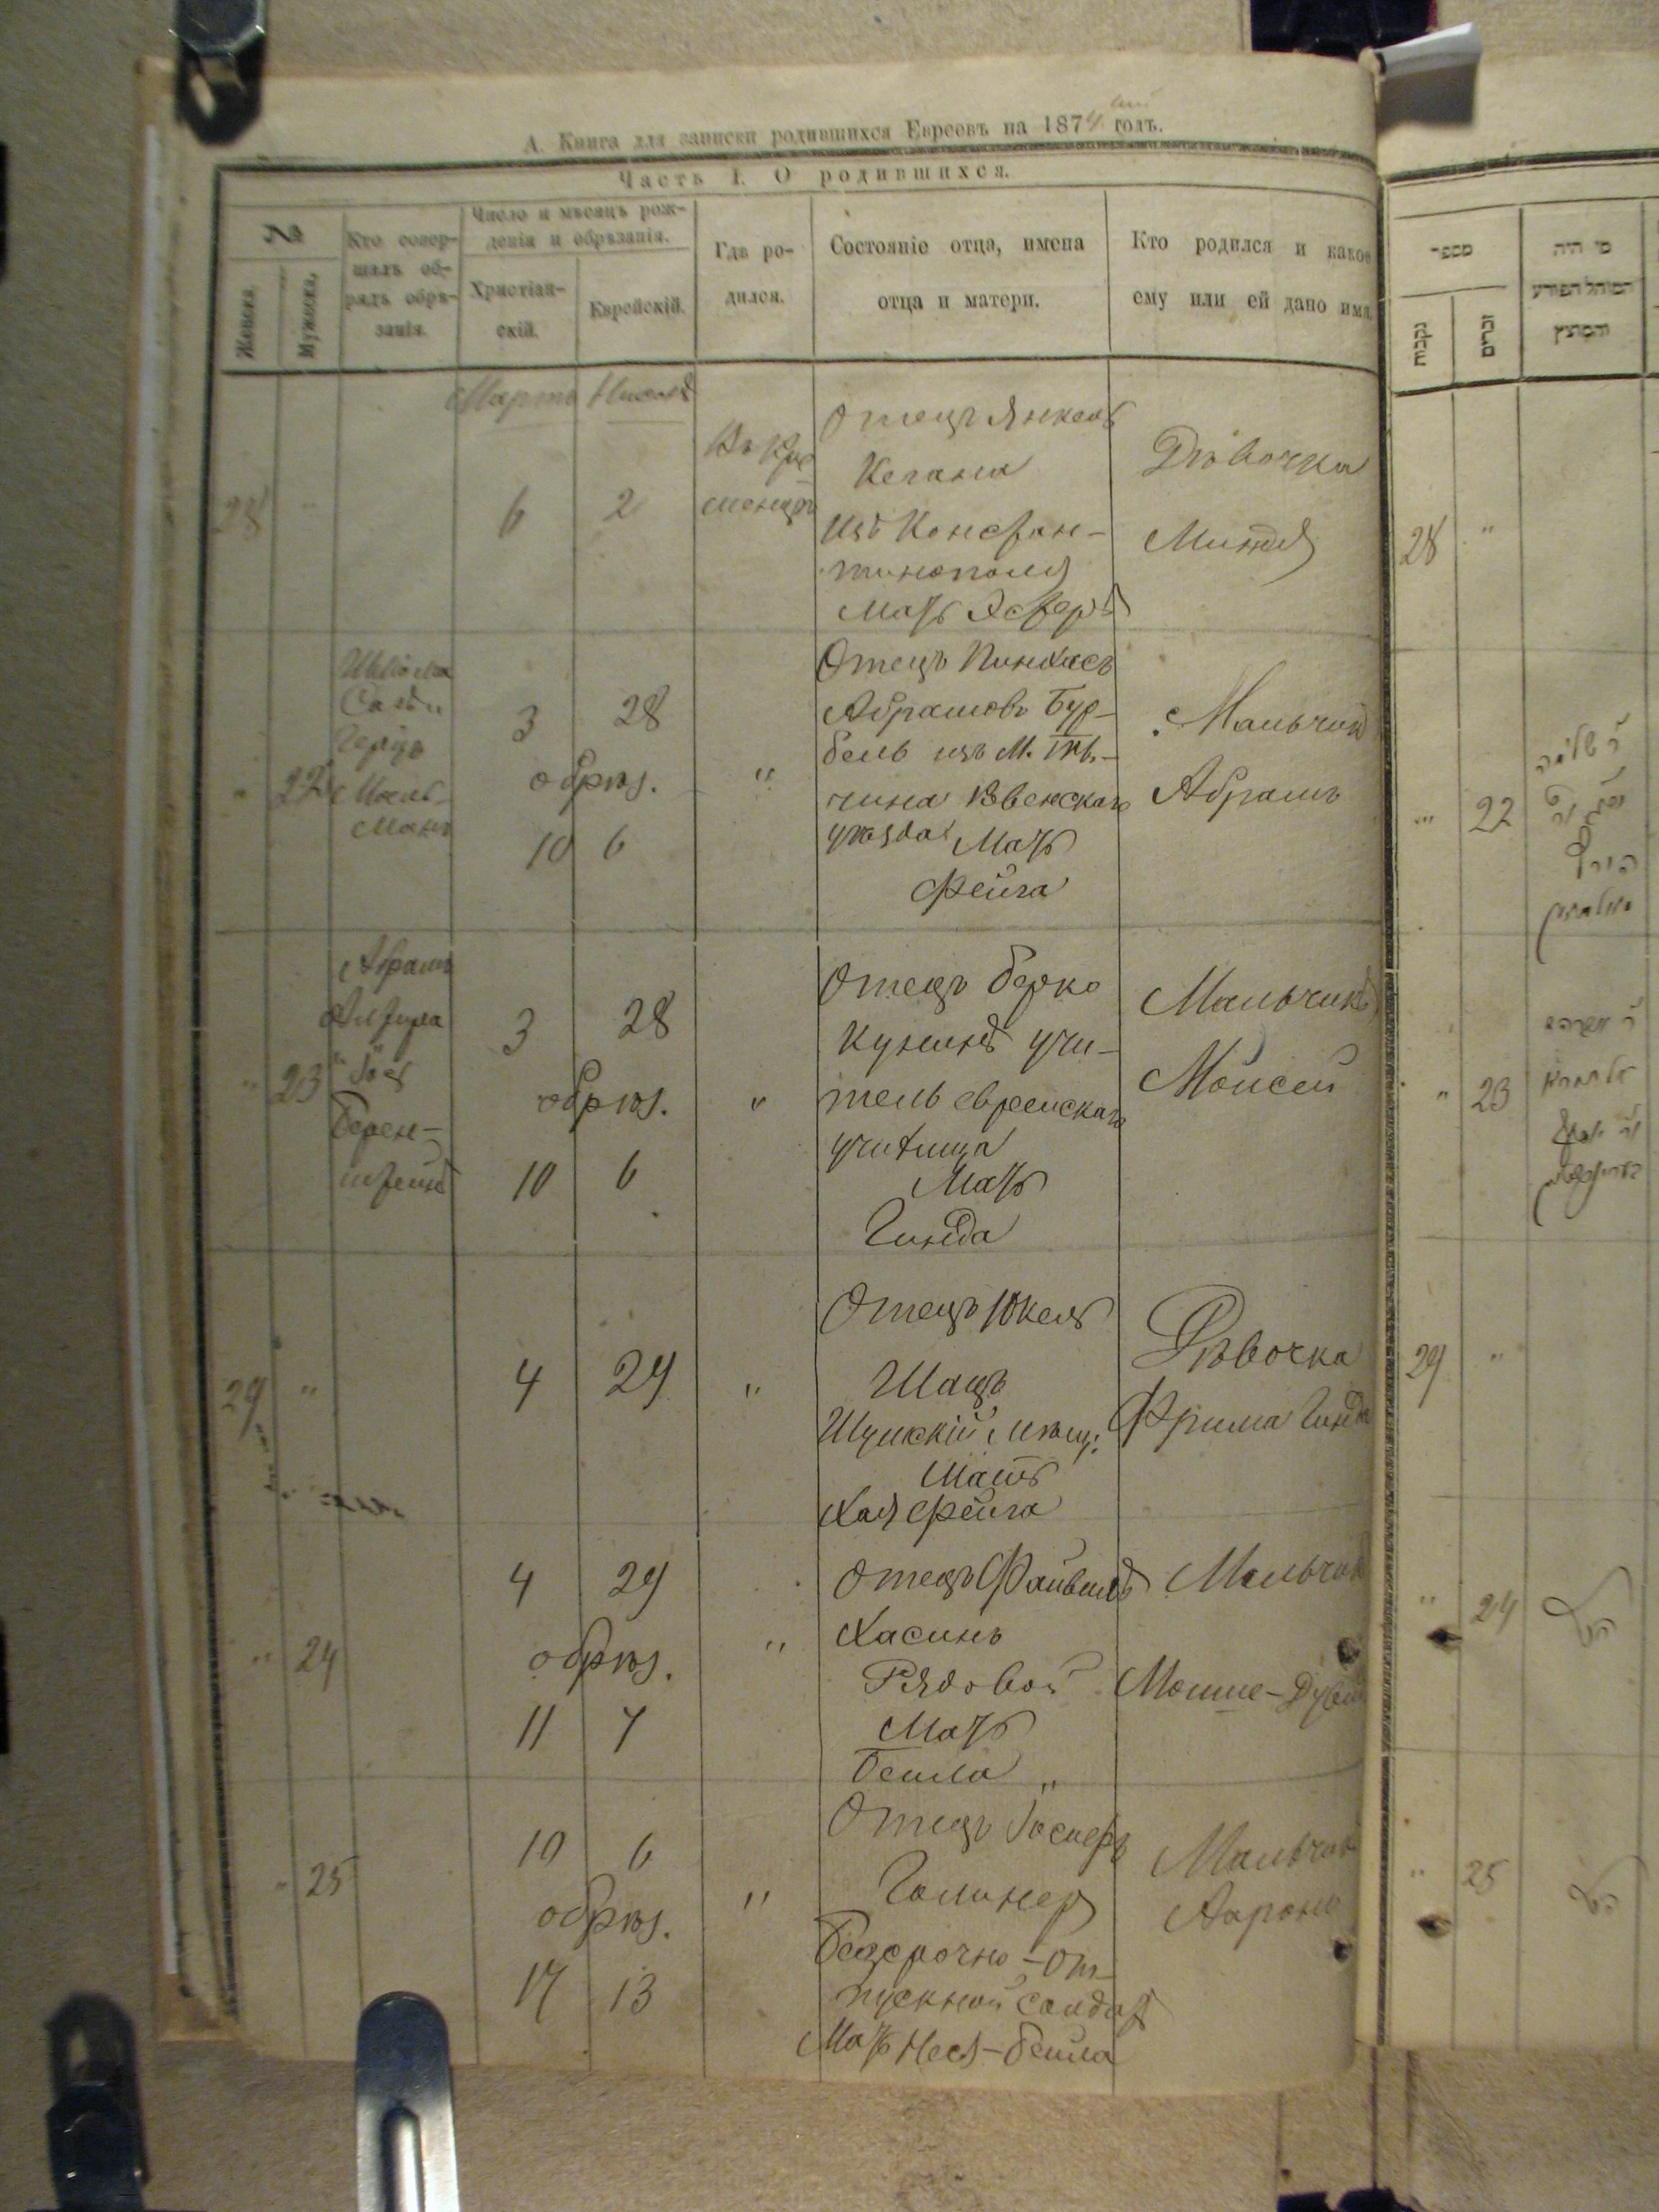 А. Книга для записки родившихся Евреевъ на 1874 годъ.
Часть I. О родившихся.
№
Женска.
Мужеска.
Кто совер-
шалъ об-
рядъ обрѣ-
занія.
Число и мѣсяцъ рож-
денія и обрѣзанія.
Христіан-
скій.
Еврейскій.
Гдѣ ро-
дился.
Состояніе отца, имена
отца и матери.
Кто родился и какое
ему или ей дано имя.
Мартъ
28 "
6 2
Въ Кре
менцѣ
Отецъ Янкель
Кегана
Изъ Констан-
тинополя
Мать Эстеръ
Дѣвочка
" 22
Шлiома
Герцъ
Мань
3 28
обрѣз.
10 6
"
Отецъ Пинхасъ
Абрамовъ Бур-
бель изъ М.
уѣзда Мать
Фейга
Мальчикъ
Абрамъ
" 23
Абрамъ
Берен-
штейнъ
3 28
обрѣз.
10 6
"
Отецъ Берко
Кунинъ учи-
тель еврейскаго
училища
Мать
Гинда
Мальчикъ
Моисей
29 "
4 29
"
Отецъ Юкель
Шацъ
Шумскій мѣщ.
Мать
Хая Фейга
Дѣвочка
Фрима Гинда
" 24
4 29
обрѣз.
11 7
"
Отецъ Файвель
Хасинъ
Рядовой
Мать
Бейла "
Мальчик
Мошше-
" 25
10 6
обрѣз.
17 13
"
Отецъ
Галинер
Безсрочно-от-
пускной солдат
Мать Неся-Бейла
Мальчик
Ааронъ
מספר
נקבות
זכרים
מי היה
המוהל הפורע
והמוצץ
28 "
" 22
ר' שלמה
הירץ
" 23
29 "
" 24
" 25